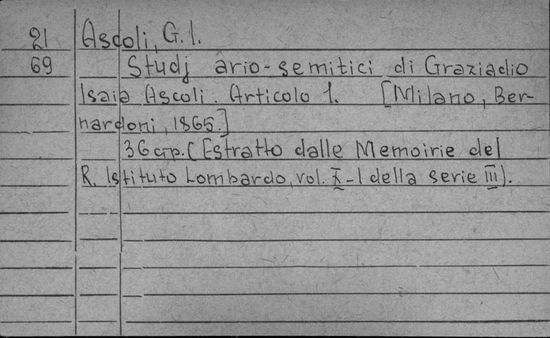 21 Ascoli, G. I.
69 Studj ario-semitici di Graziadio
Isaia Ascoli. Articolo 1. [Milano, Ber-
nardoni, 1865.]
36 стр. (Estratto dalle Memoirie del
R. Istituto Lombardo, vol. X-I della serie III).